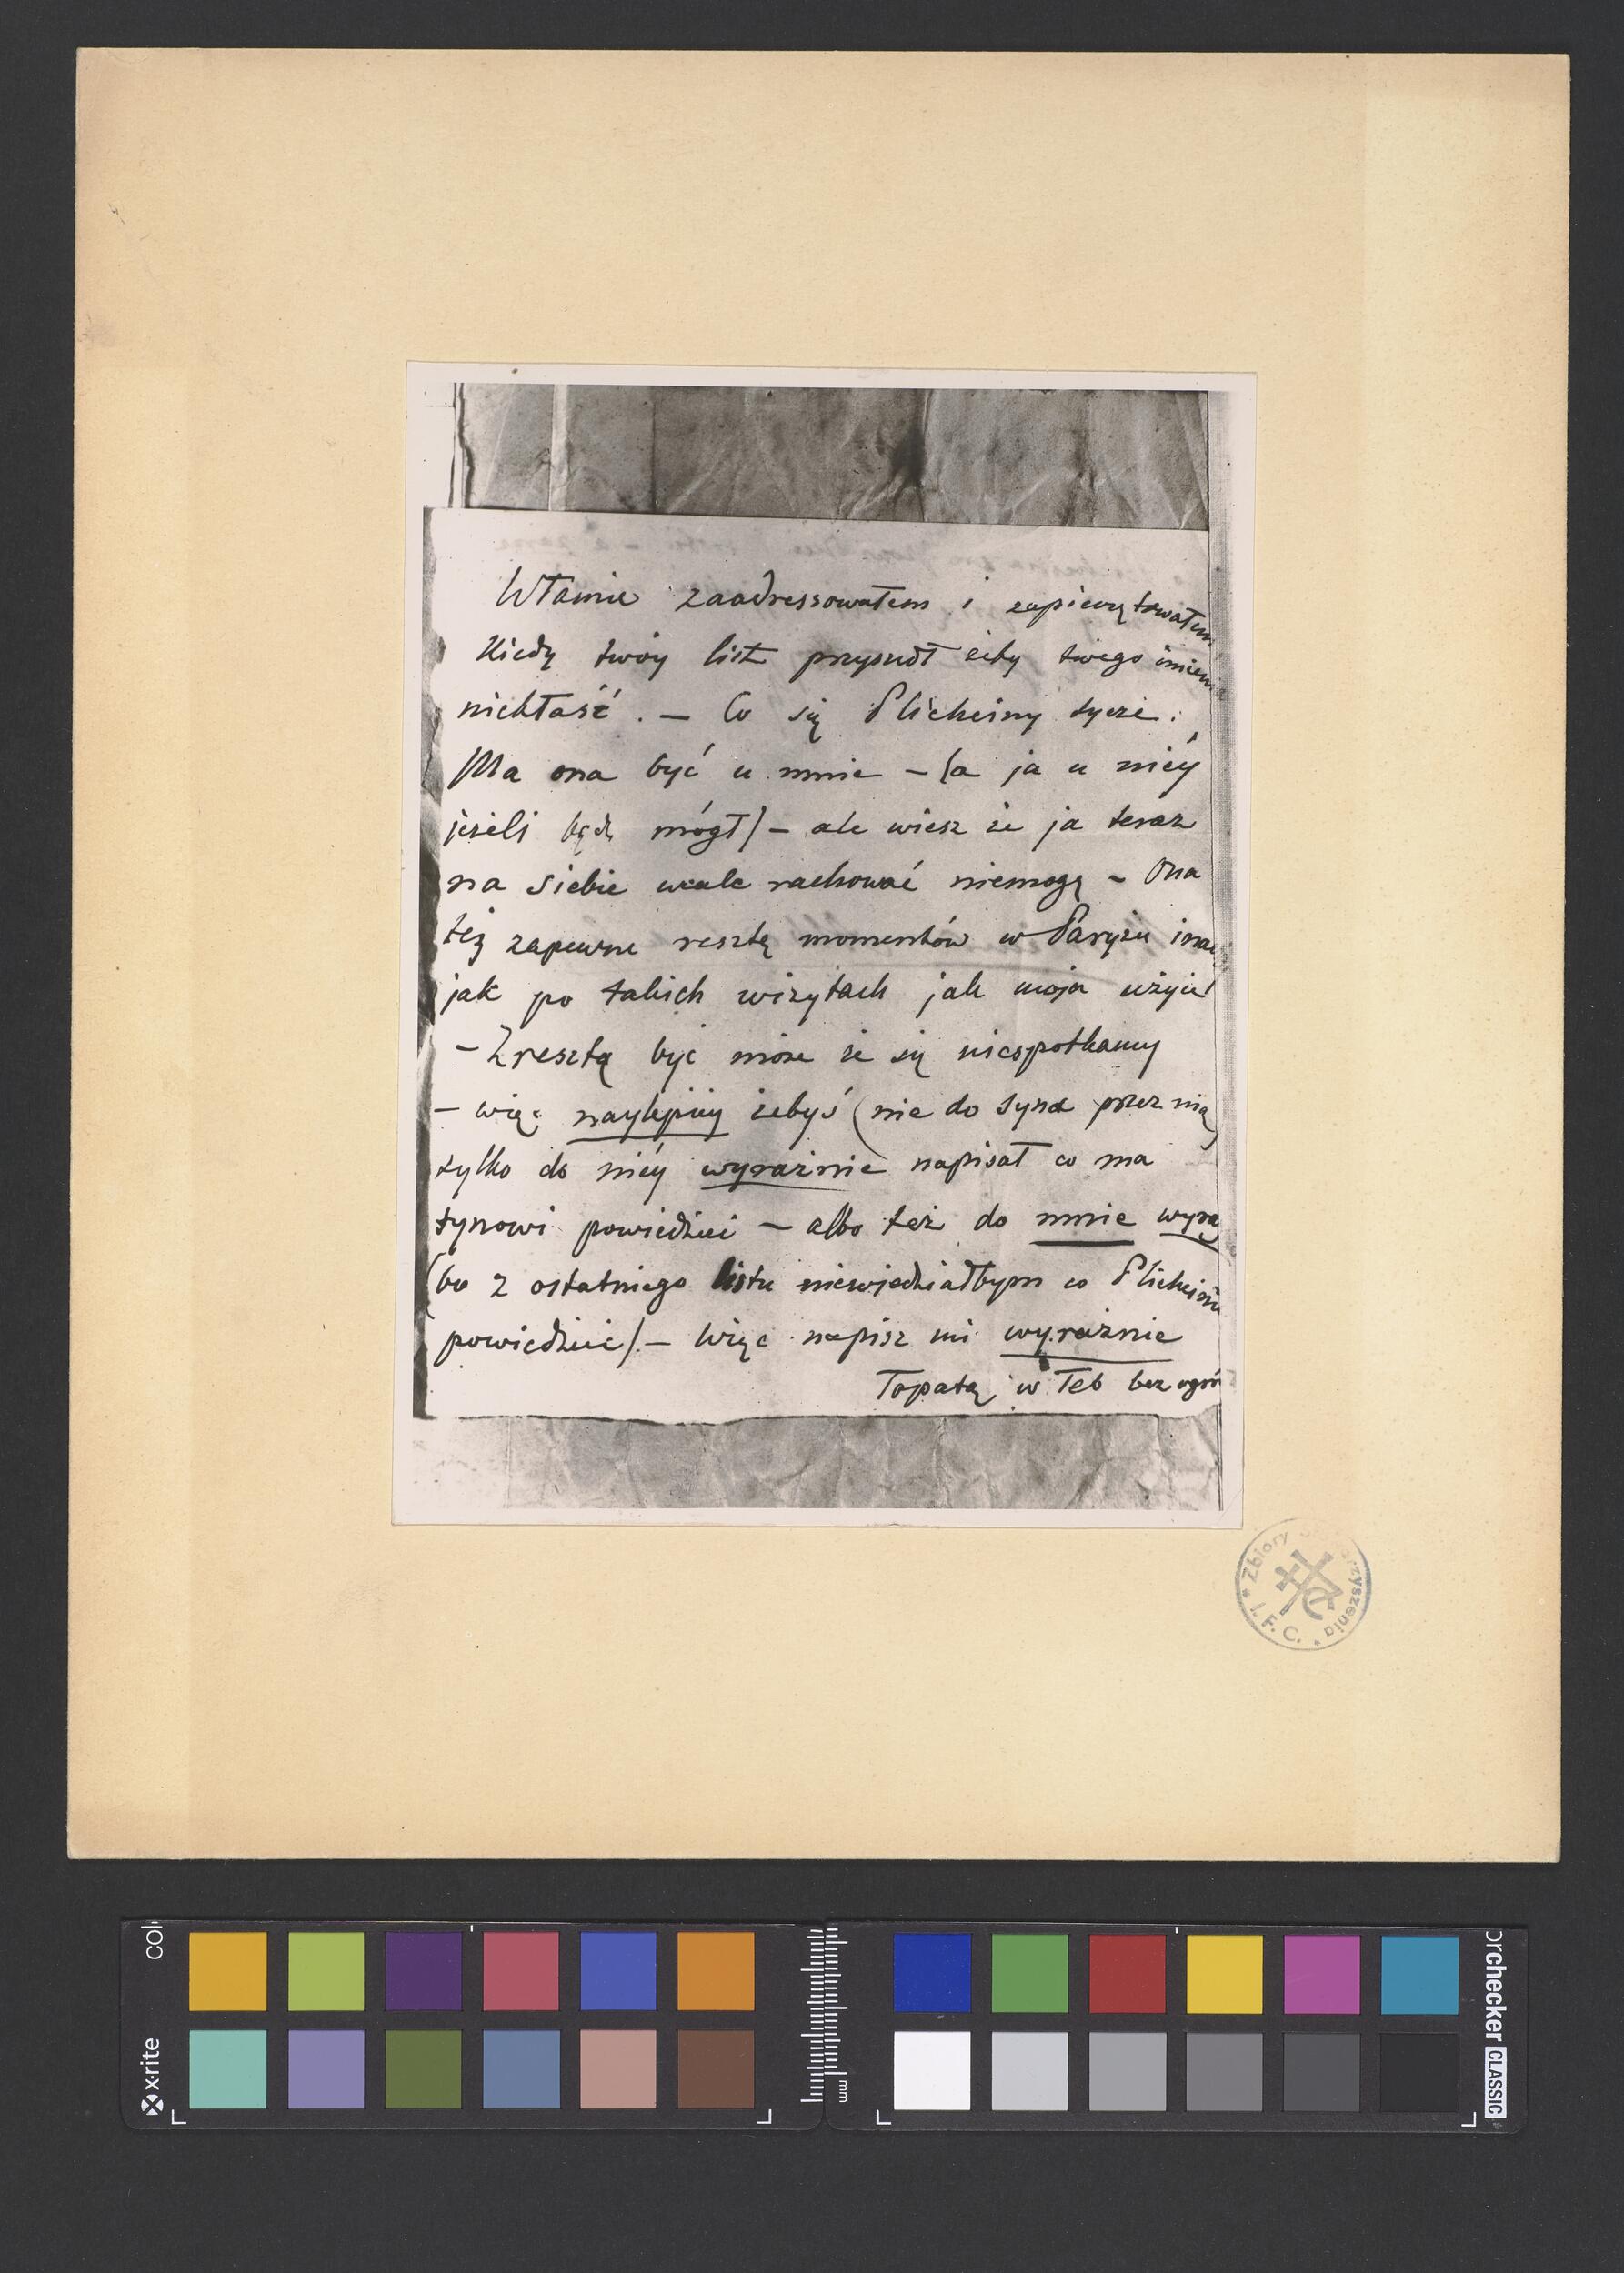 Właśnie zaadressowałem i zapieczętowałem
Kiedy twóy list przyszedł żeby twego imieni
niekłaść. — Co się Plicheiny tycze:
Ma ona być u mnie — (a ja u niéy
jeżeli będę mógł) — ale wiesz że ja teraz
na siebie wcale rachować niemogę — Ona
też zapewne resztę momentów w Paryżu
jak po takich wizytach jak moja użyie
— Zresztą być może że się niespotkamy
— więc naylepiiy żebyś (nie do syna przez nią)
tylko do niéy wyraźnie napisał co ma
synowi powiedzieć — albo też do mnie wyra
(bo z ostatniego listu niewiedziałbym co Plicheinie
powiedzieć). — Więc napisz mi wyraźnie
Łopatą w łeb bez ogró
Zbiory rzyszenia
I. F. C.
x·rite
colorchecker CLASSIC
mm